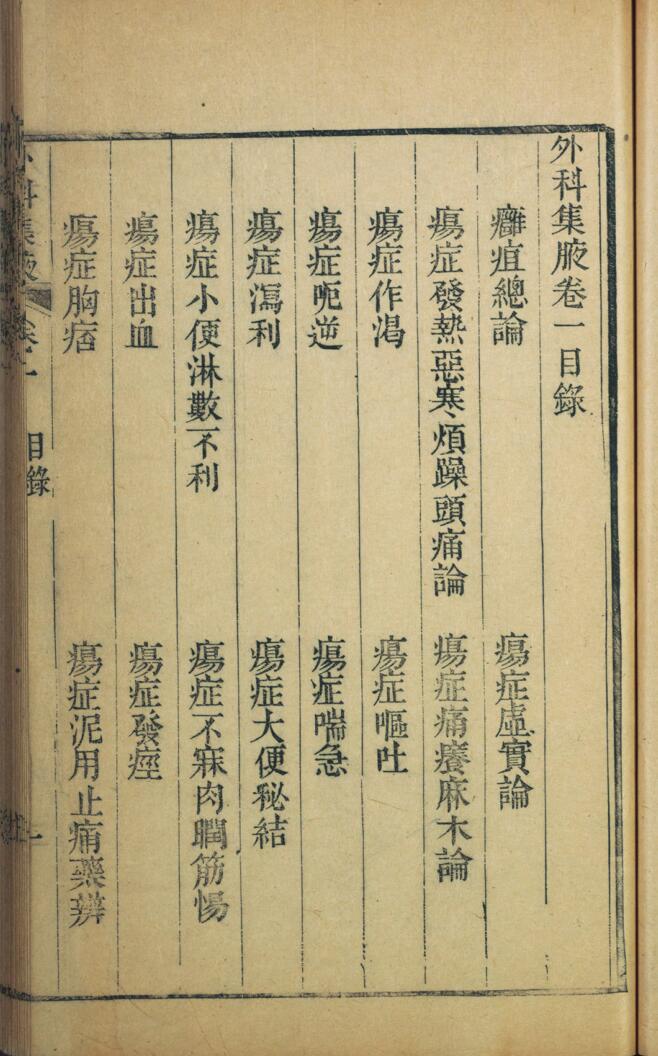 外科集腋卷一目錄
癰疽總論
瘍症虛實論
瘍症發熱惡寒煩躁頭痛論
瘍症痛癢麻木論
瘍症作渴
瘍症嘔吐
瘍症呃逆
瘍症喘急
瘍症瀉利
瘍症大便秘結
瘍症小便淋數不利
瘍症不寐肉瞤筋惕
瘍症出血
瘍症發痙
瘍症胸痞
瘍症泥用止痛藥辨
外科集腋 卷一 目錄 一